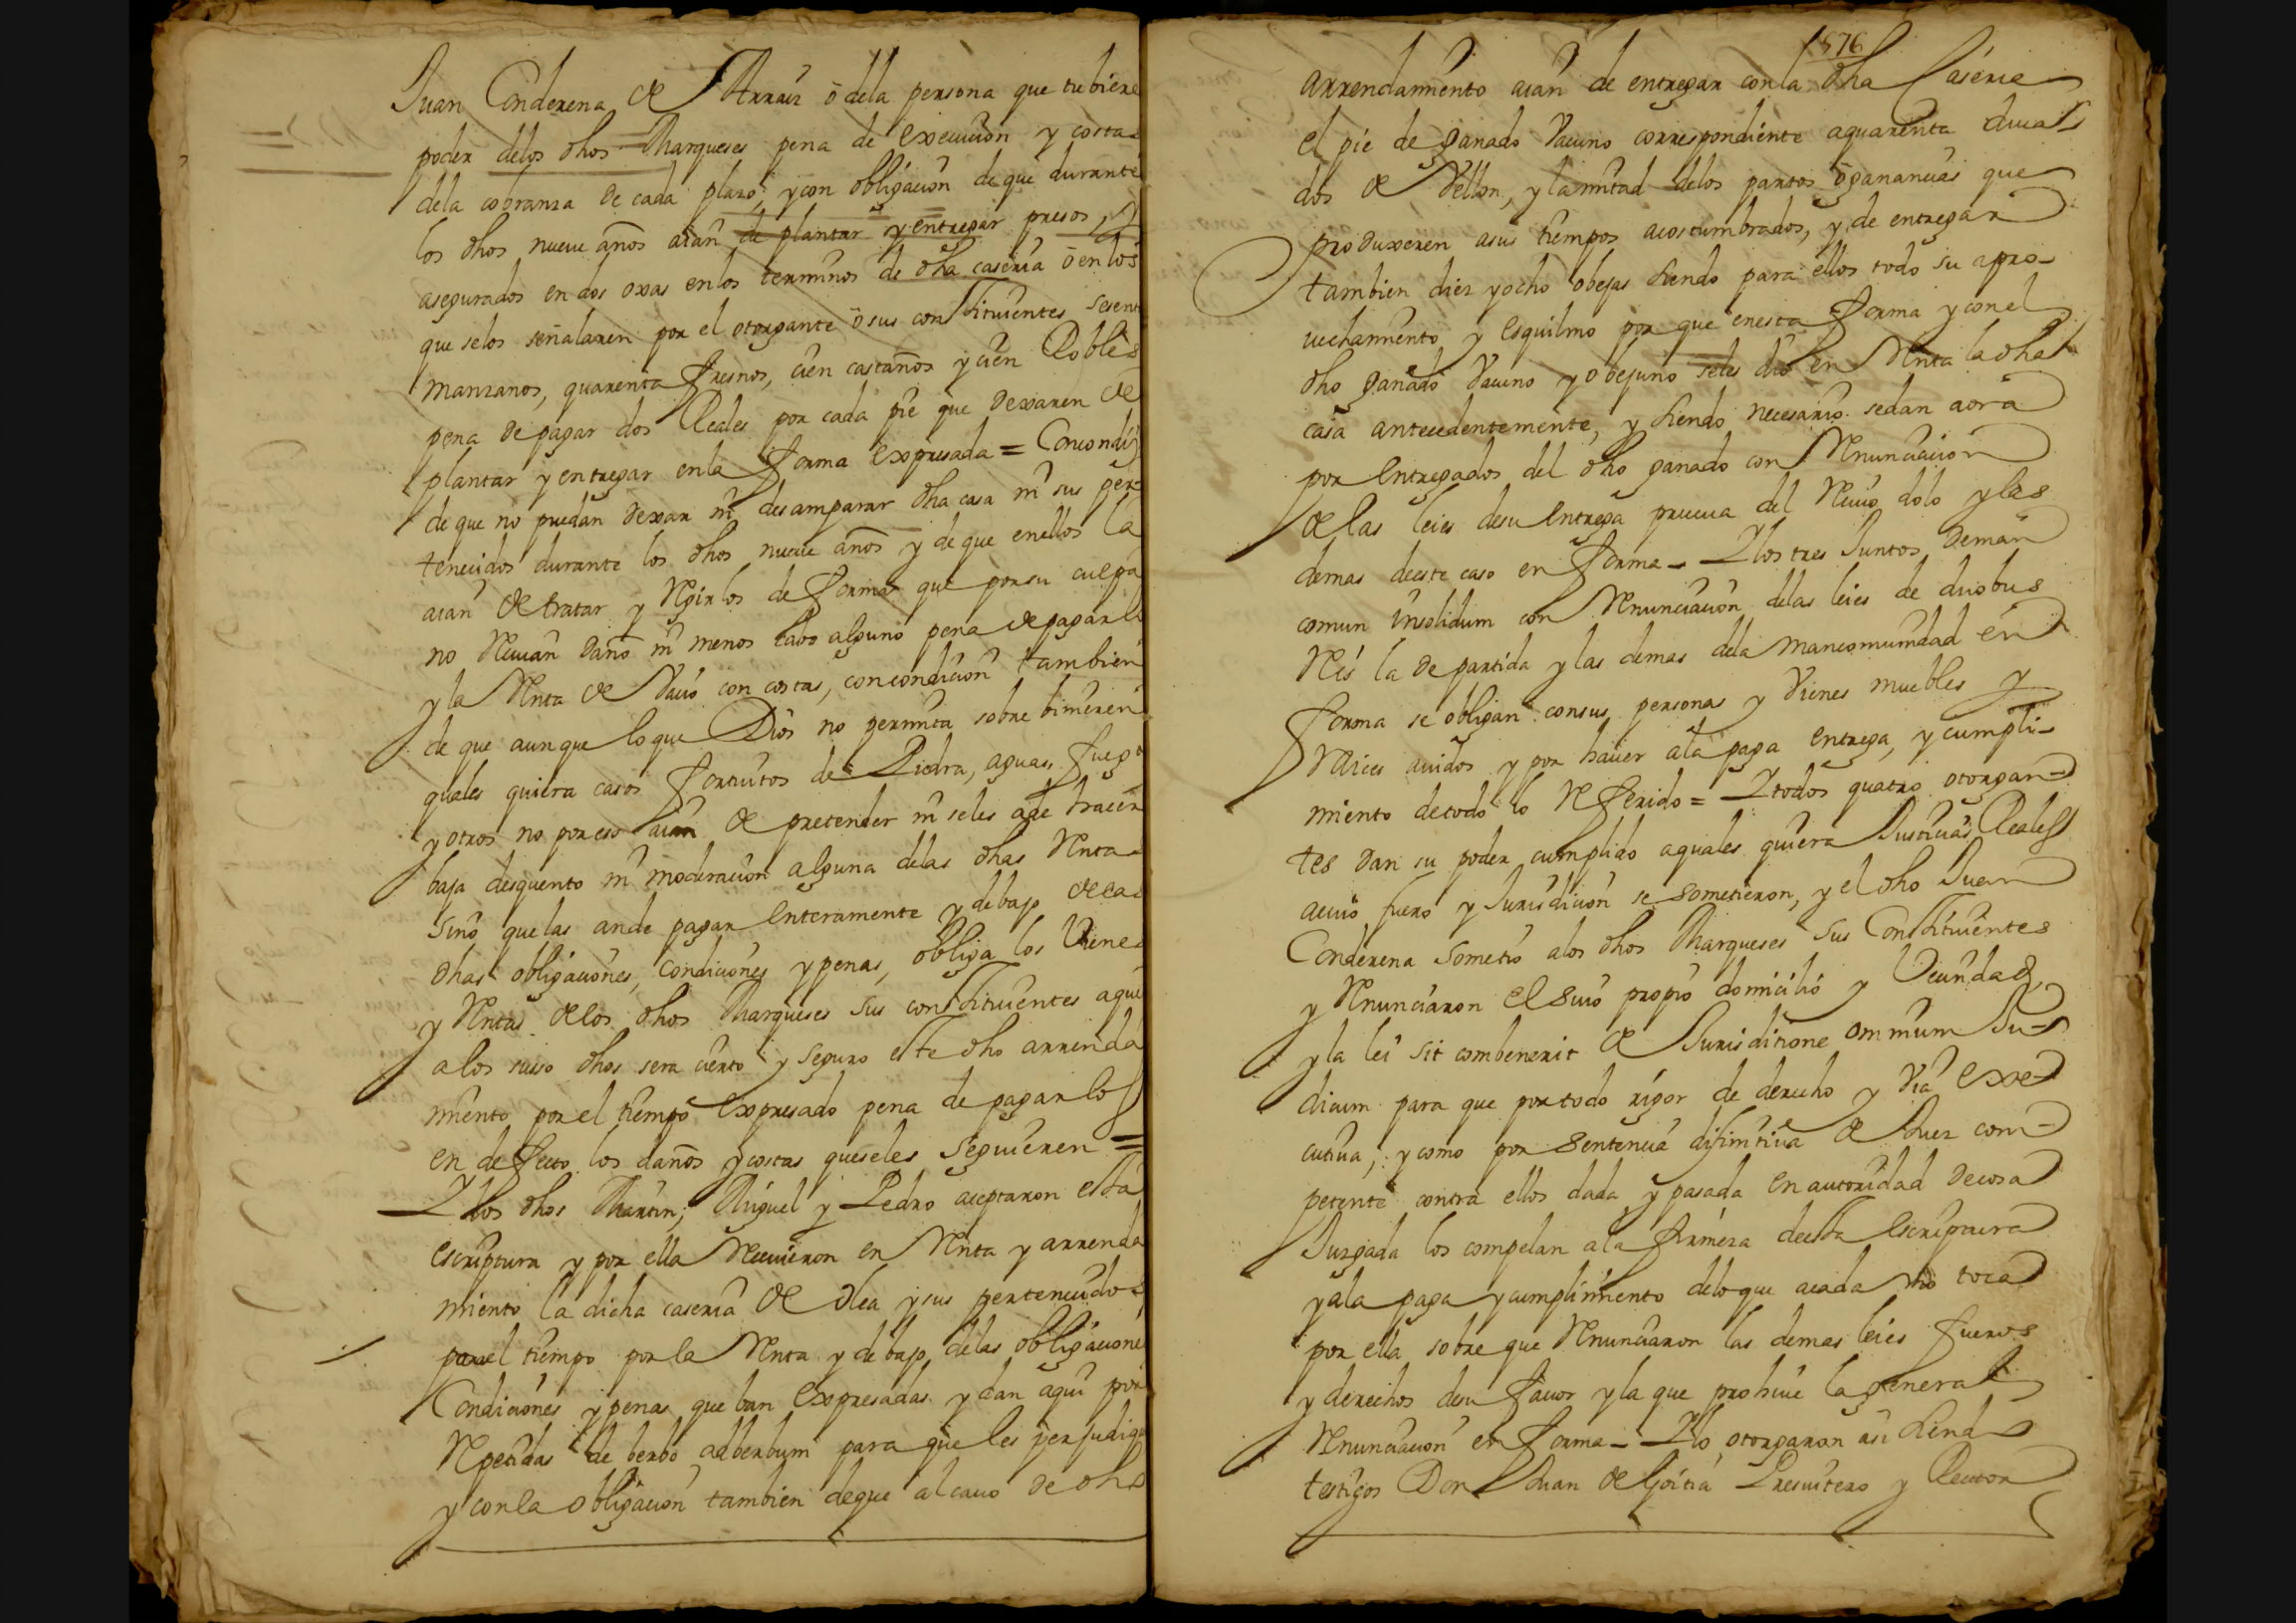 Juan Conderena de Arraiz o dela persona que tubiere
poder delos dhos Marqueses pena de execucion y costas
dela cobranza de cada plazo, y con obligacion de que durante
los dhos nueve años aian de plantar y entregar presos, y
asegurados en dos oxas en los terminos de dha caseria o en los
que se los señalaren por el otorgante o sus constituientes sesent
manzanos, quarenta fresnos, cien castaños y cien Robles
pena de pagar dos Reales por cada pie que dexaren de
plantar y entregar en la forma expresada = Con condiz
de que no puedan dexar ni desamparar dha casa ni sus per-
tenecidos durante los dhos nueve años y de que en ellos la
aian de tratar y Regirlos de forma que por su culpa
no Reciuan daño ni menos cabo alguno pena de pagarlo
y la Renta de Vacio con costas, con condicion tambien
de que aunque lo que Dios no permita sobre binieren
quales quiera casos fortuitos de Piedra, aguas, fuego
y otros no por eso aian de pretender ni seles a de hacer
baja desquento ni moderacion alguna delas dhas Rentas
Sino que las an de pagar enteramente y debajo de las
dhas obligaciones, condiciones y penas, obliga los Vienes
y Rentas de los dhos Marqueses sus constituientes a que
a los suso dhos sera cierto y seguro este dho arrenda
miento por el tiempo expresado pena de pagarlos
en defecto los daños y costas que seles seguieren =
Y los dhos Martin, Miguel y Pedro aceptaron esta
escriptura y por ella Reciuieron en Renta y arrenda
miento la dicha caseria de Olea y sus pertenecidos
por el tiempo por la Renta y debajo delas obligaciones
Condiciones y penas que ban expresadas y dan aqui por
Repetidas de berbo adberbum para que les perjudiqu
y con la obligacion tambien de que al cauo de dho
576
arrendamiento aian de entregar con la dha Caseria
el pie de ganado Vacuno correspondiente a quarenta duca-
dos de Vellon, y la mitad delos partos o ganancias que
produxeren a sus tiempos acostumbrados, y de entregar
tambien diez y ocho obejas siendo para ellos todo su apro-
uechamiento y esquilmo por que en esta forma y con el
dho ganado Vacuno y obejuno seles dio en Renta la dha
casa antecedentemente, y siendo necesario se dan aora
por entregados del dho ganado con Renunciacion
de las leies de su entrega prueua del Reciuo dolo y las
demas de este caso en forma - Y los tres Juntos de man
comun insolidum con Renunciacion delas leies de duobus
Reis la de partida y las demas dela mancomunidad en
forma se obligan con sus personas y Vienes muebles y
Raices auidos y por hauer a la paga entrega, y cumpli-
miento de todo lo Referido = Y todos quatro otorgan-
tes dan su poder cumplido a quales quiera Justicias Reales
a cuio fuero y Jurisdicion se sometieron, y el dho Juan
Conderena sometio a los dhos Marqueses sus Constituientes
y Renunciaron el suio propio domicilio y Vecindad,
y la lei sit combenerit de Jurisditione omnium Ju-
dicum para que por todo rigor de derecho y Via exe-
cutiua, y como por sentencia difinitiua de Juez com-
petente contra ellos dada y pasada en autoridad de cosa
Juzgada los compelan a la firmeza de esta escriptura
y a la paga y cumplimiento delo que a cada uno toca
por ella sobre que Renunciaron las demas leies fueros
y derechos de su fauor y la que prohiue la general
Renunciacion en forma - Y lo otorgaron asi siendo
testigos Don Juan de Goitia Presuitero y Rector